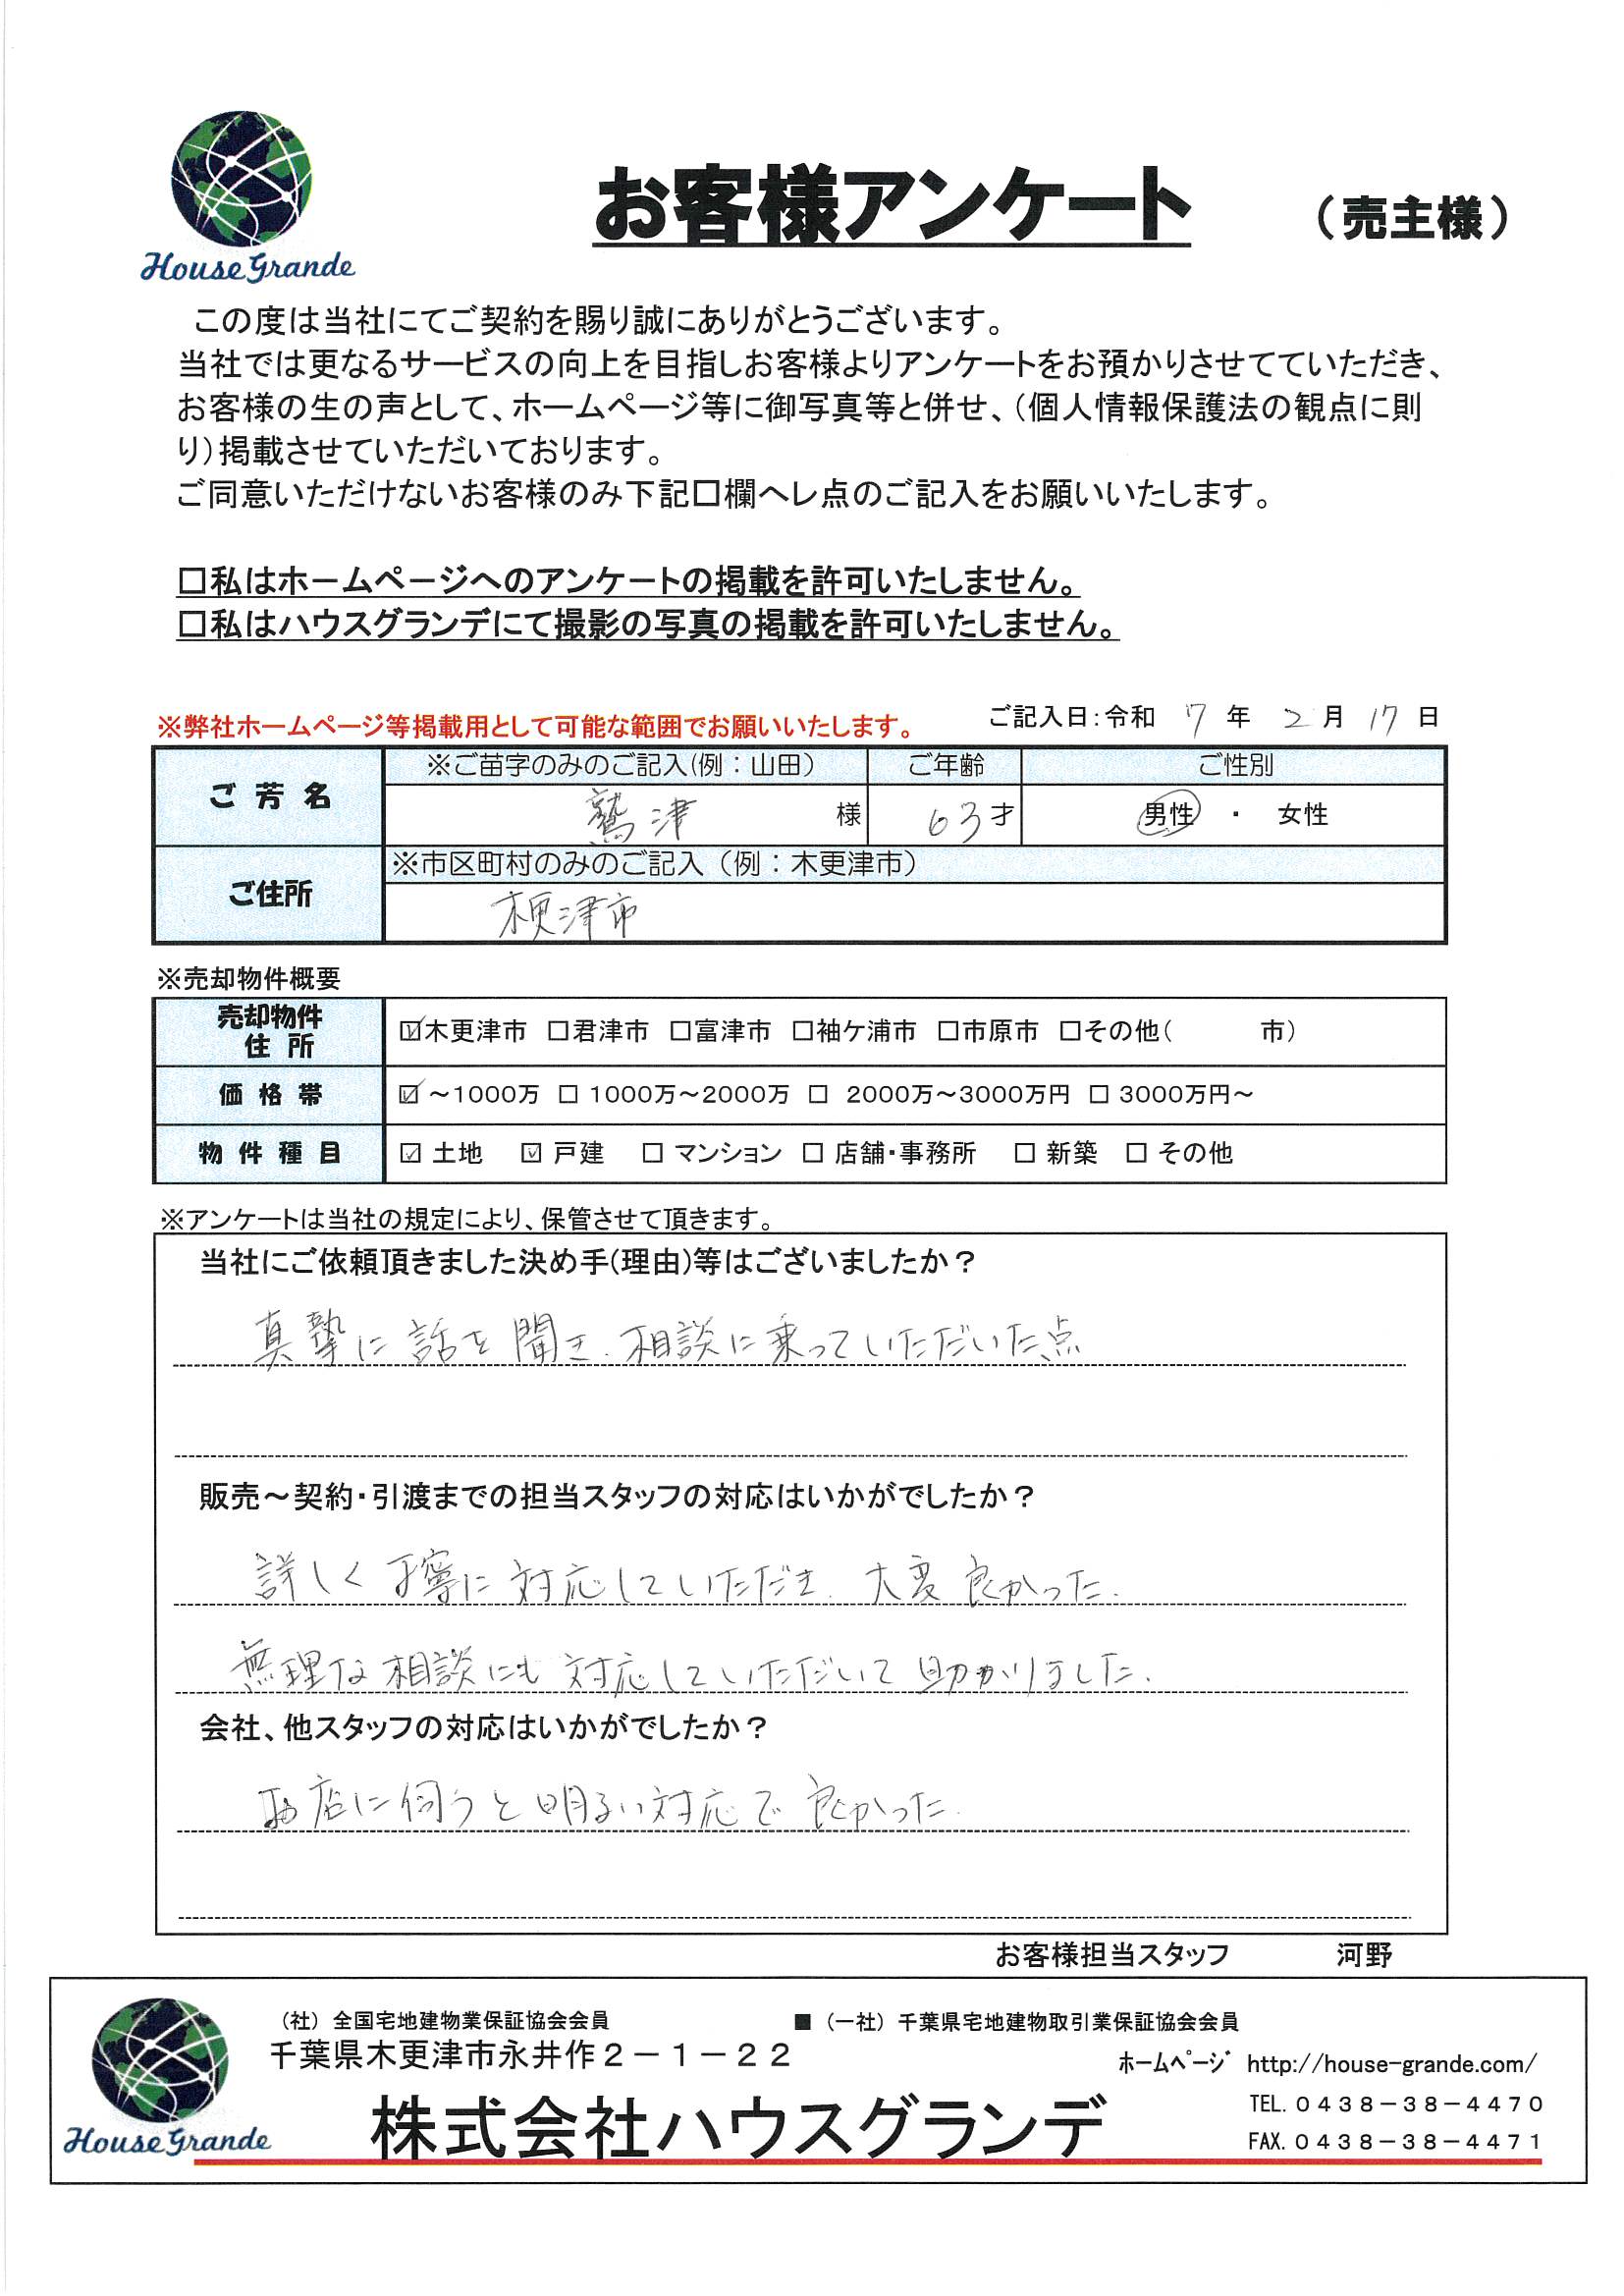 House Grande
お客様アンケート （売主様）
この度は当社にてご契約を賜り誠にありがとうございます。
当社では更なるサービスの向上を目指しお客様よりアンケートをお預かりさせてていただき、
お客様の生の声として、ホームページ等に御写真等と併せ、（個人情報保護法の観点に則
り）掲載させていただいております。
ご同意いただけないお客様のみ下記口欄へレ点のご記入をお願いいたします。
□私はホームページへのアンケートの掲載を許可いたしません。
□私はハウスグランデにて撮影の写真の掲載を許可いたしません。
※弊社ホームページ等掲載用として可能な範囲でお願いいたします。 ご記入日：令和 7 年 2 月 17 日
ご芳名 ※ご苗字のみのご記入（例：山田） ご年齢 ご性別
鷲津 様 63 才 男性 ・ 女性
ご住所 ※市区町村のみのご記入（例：木更津市）
木更津市
※売却物件概要
売却物件住所 ☑木更津市 □君津市 □富津市 □袖ケ浦市 □市原市 □その他（ 市）
価格帯 ☑～1000万 □1000万～2000万 □ 2000万～3000万円 □3000万円～
物件種目 ☑土地 ☑戸建 □マンション □店舗・事務所 □新築 □その他
※アンケートは当社の規定により、保管させて頂きます。
当社にご依頼頂きました決め手（理由）等はございましたか？
真摯に話を聞き、相談に乗っていただいた点
販売～契約・引渡までの担当スタッフの対応はいかがでしたか？
詳しく丁寧に対応していただき、大変良かった。
無理な相談にも対応していただいて助かりました。
会社、他スタッフの対応はいかがでしたか？
お店に伺うと明るい対応で良かった。
お客様担当スタッフ 河野
House Grande
（社）全国宅地建物業保証協会会員 ■（一社）千葉県宅地建物取引業保証協会会員
千葉県木更津市永井作２－１－２２ ﾎｰﾑﾍﾟｰｼﾞ http://house-grande.com/
株式会社ハウスグランデ
TEL.０４３８－３８－４４７０
FAX.０４３８－３８－４４７１